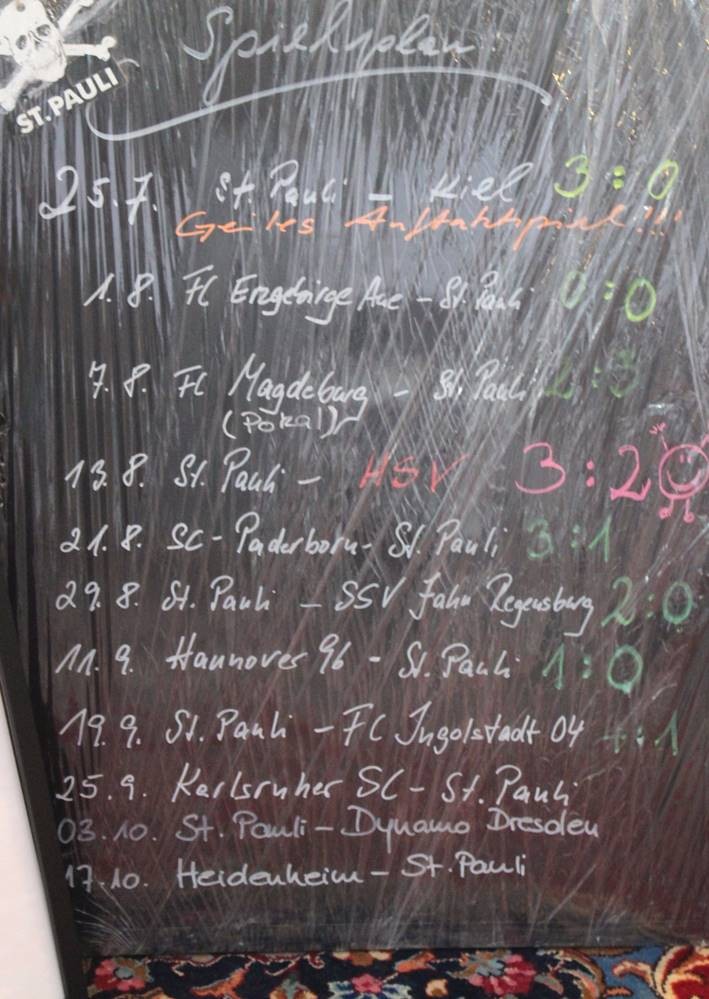 ST. PAULI
Spielplan
25.7. St. Pauli - Kiel 3:0
Geiles Auftaktspiel!!!
1.8. FC Erzgebirge Aue - St. Pauli 0:0
7.8. FC Magdeburg - St. Pauli 2:3
(Pokal)
13.8. St. Pauli - HSV 3:2
21.8. SC-Paderborn - St. Pauli 3:1
29.8. St. Pauli - SSV Jahn Regensburg 2:0
11.9. Hannover 96 - St. Pauli 1:0
19.9. St. Pauli - FC Ingolstadt 04 4:1
25.9. Karlsruher SC - St. Pauli
03.10. St. Pauli - Dynamo Dresden
17.10. Heidenheim - St. Pauli